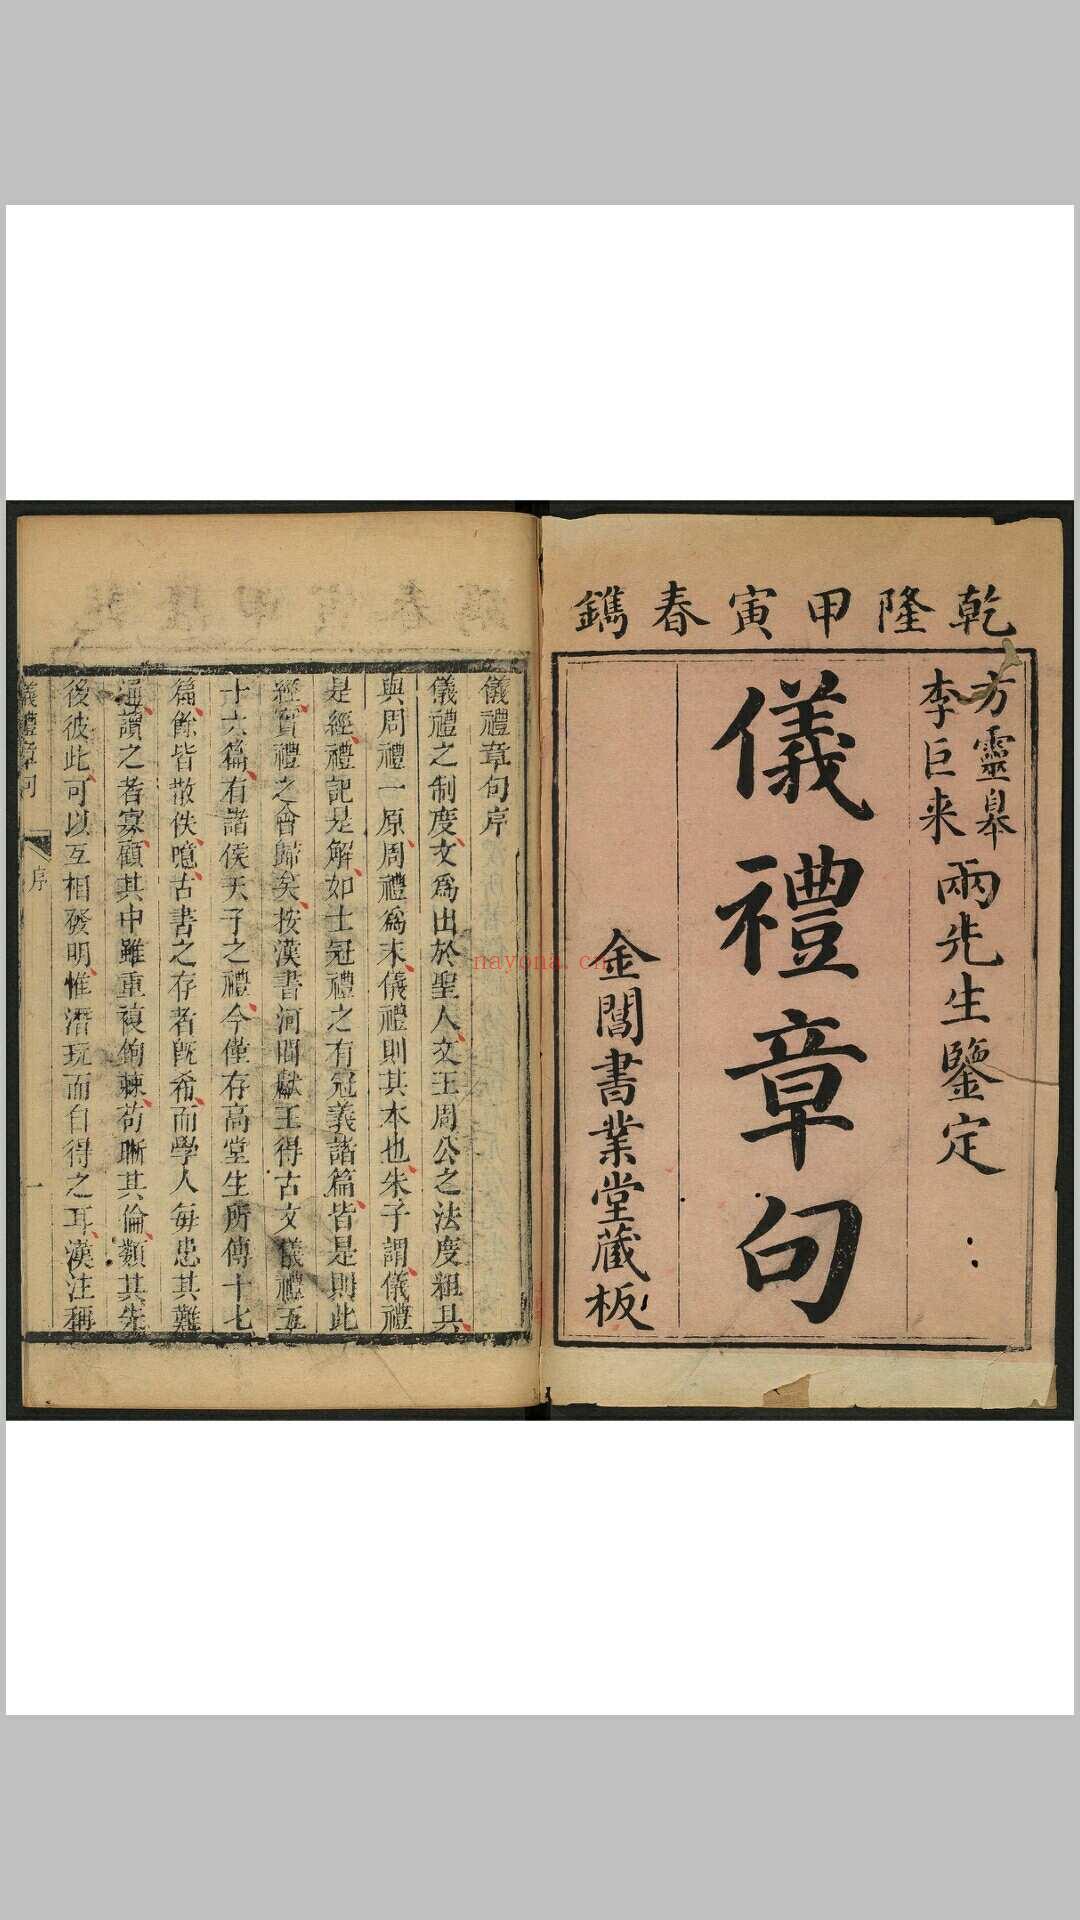 乾隆甲寅春鐫
方靈皋
李巨来
兩先生鑒定
儀禮章句
金閶書業堂藏板
儀禮章句序
儀禮之制度文爲出於聖人文王周公之法度粗具
與周禮一原周禮爲末儀禮則其本也朱子謂儀禮
是經禮記是解如士冠禮之有冠義諸篇皆是則此
經實禮之會歸矣按漢書河間獻王得古文儀禮五
十六篇有諸侯天子之禮今僅存高堂生所傳十七
篇餘皆散佚噫古書之存者旣希而學人每患其難
通讀之者寡顧其中雖重複鉤棘苟晰其倫類其先
後彼此可以互相發明惟潛玩而自得之耳漢注稱
儀禮章句
序
一
nayona.cn